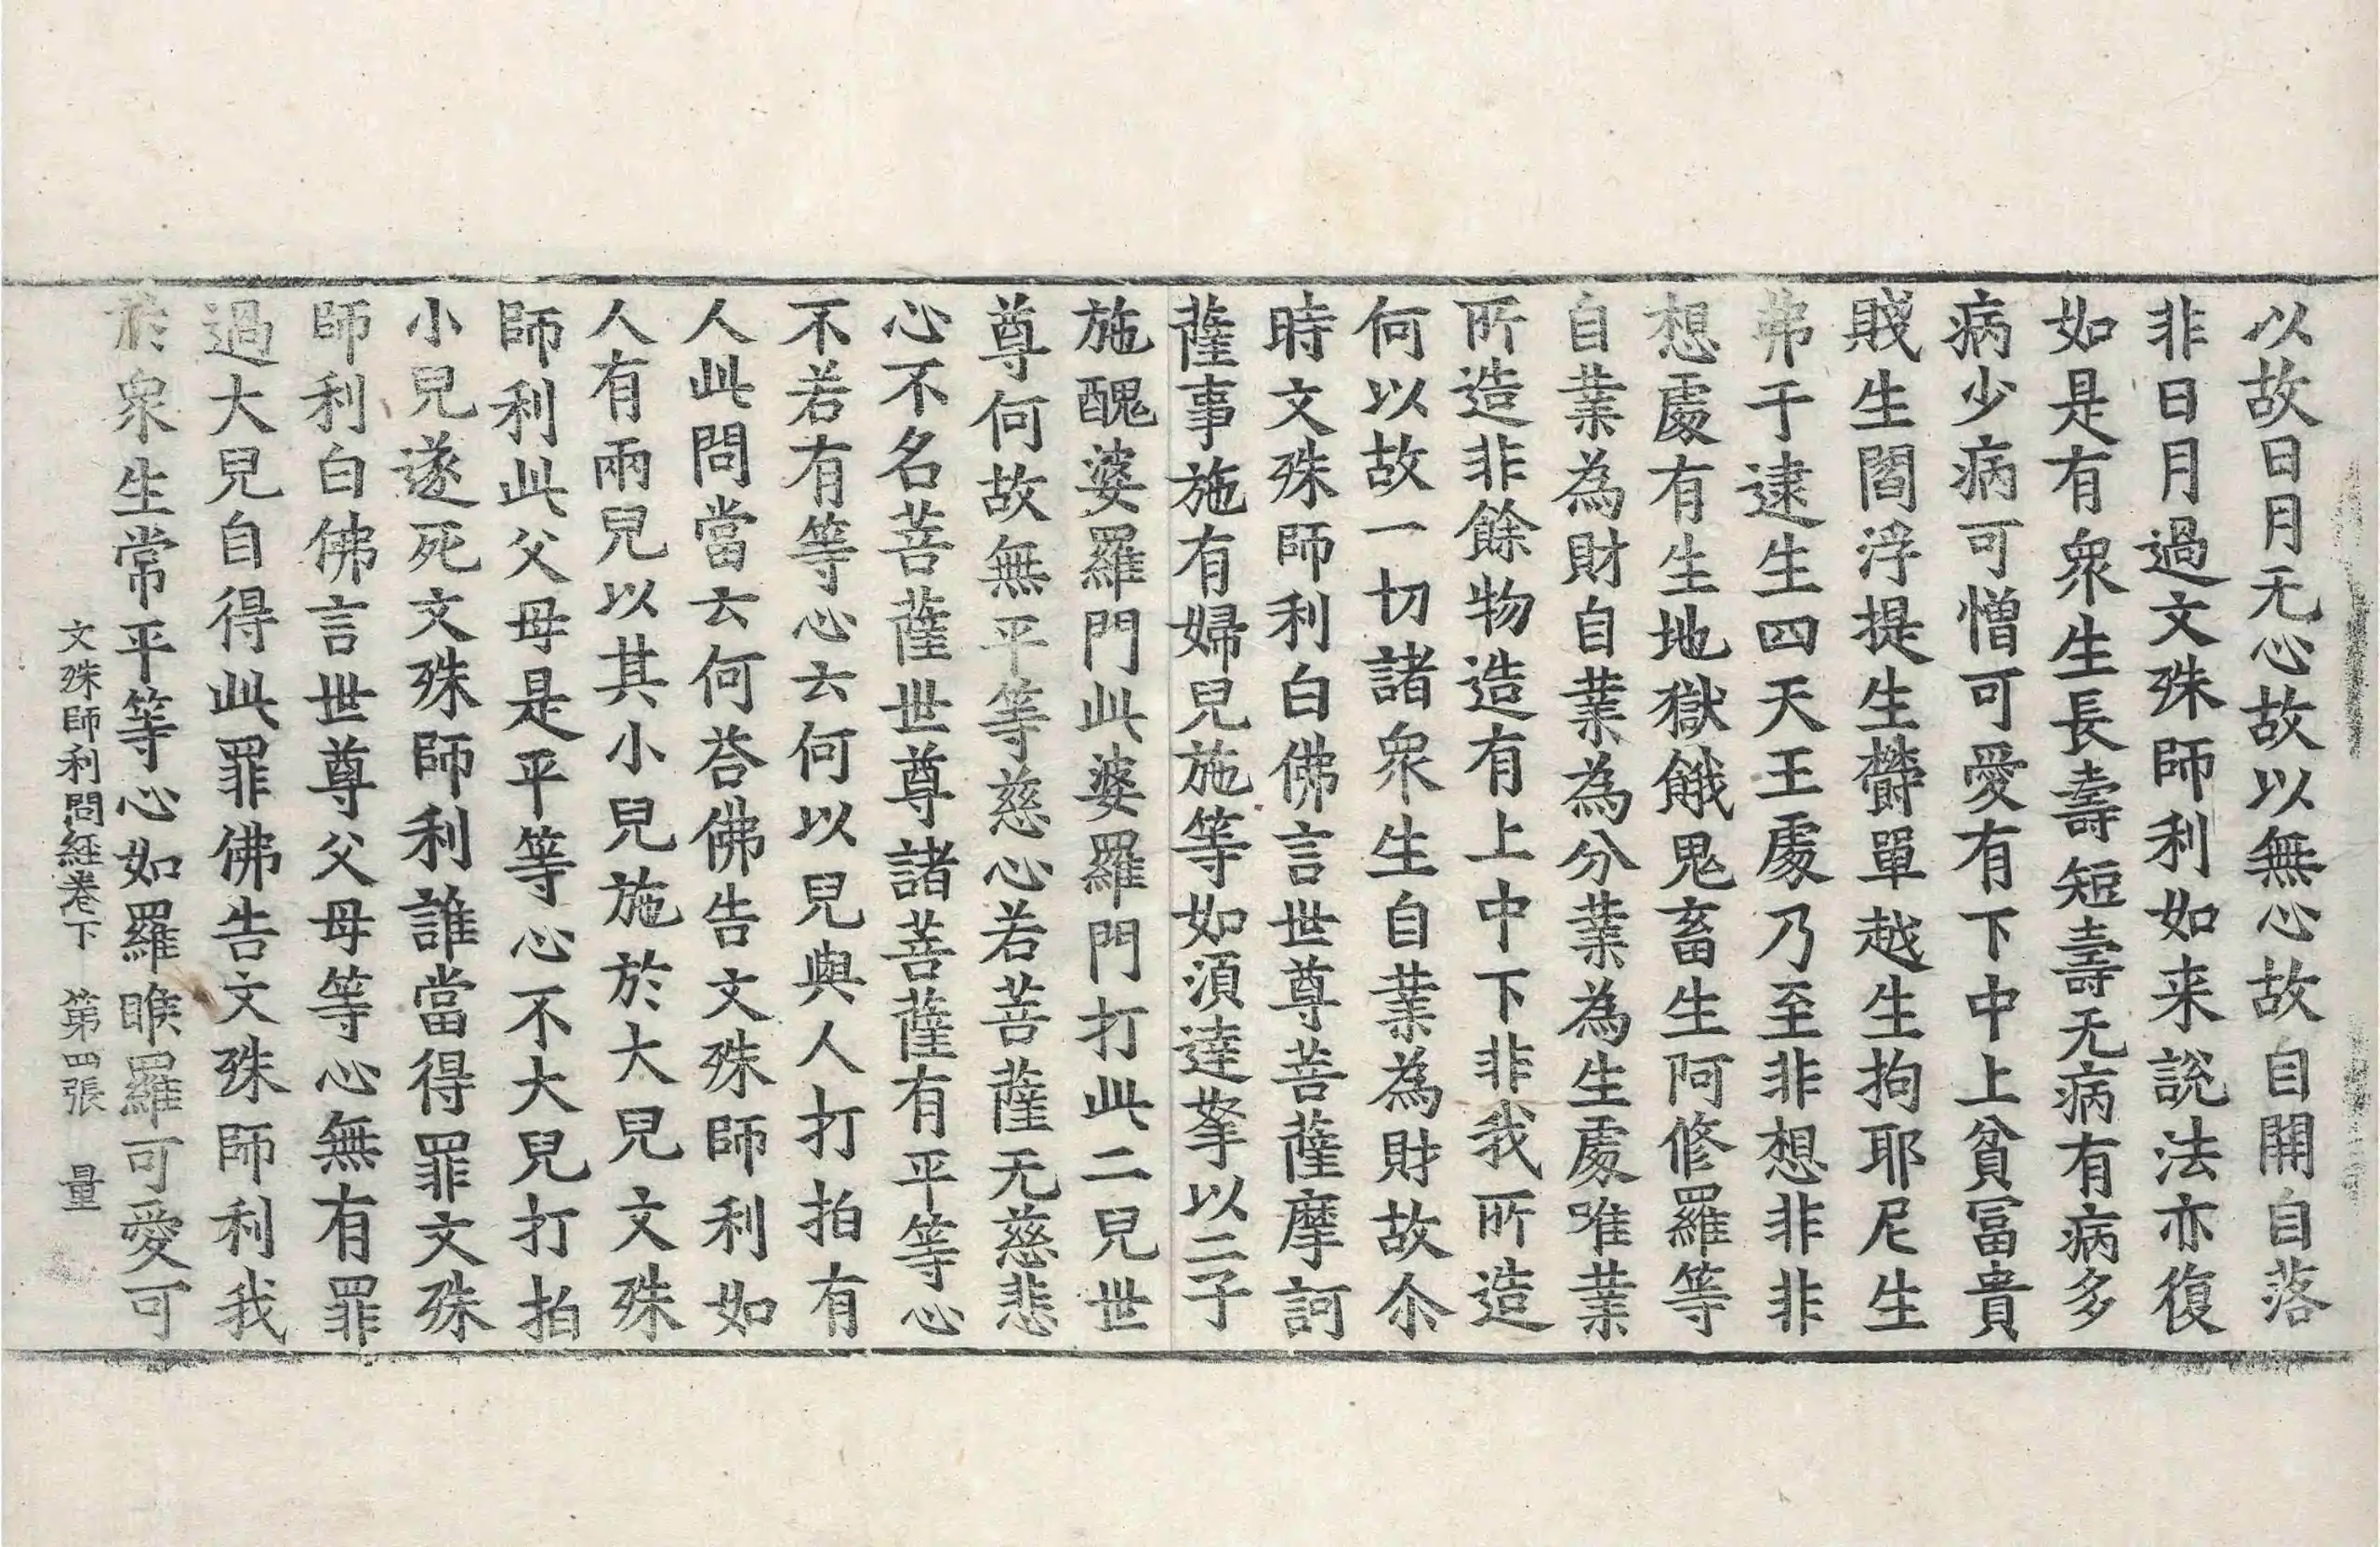 以故日月无心故以無心故自開自落
非日月過文殊師利如来說法亦復
如是有衆生長壽短壽无病有病多
病少病可憎可愛有下中上貧冨貴
賤生閻浮提生欝單越生拘耶尼生
弗于逮生四天王䖏乃至非想非非
想䖏有生地獄餓鬼畜生阿修羅等
自業為財自業為分業為生䖏唯業
所造非餘物造有上中下非我所造
何以故一切諸衆生自業為財故尒
時文殊師利白佛言世尊菩薩摩訶
薩事施有婦兒施等如湏達拏以二子
施醜婆羅門此婆羅門打此二兒世
尊何故無平等慈心若菩薩无慈悲
心不名菩薩世尊諸菩薩有平等心
不若有等心云何以兒與人打拍有
人此問當云何荅佛告文殊師利如
人有兩兒以其小兒施於大兒文殊
師利此父母是平等心不大兒打拍
小兒遂死文殊師利誰當得罪文殊
師利白佛言世尊父母等心無有罪
過大兒自得此罪佛告文殊師利我
於衆生常平等心如羅睺羅可愛可
文殊師利問経卷下 第四張 量